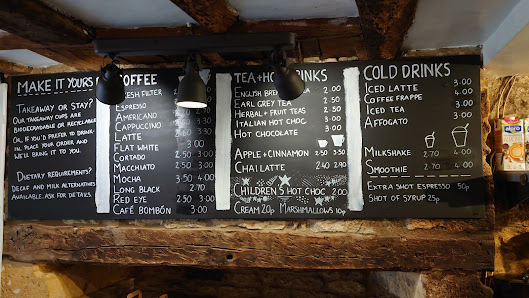 MAKE IT YOURS
TAKEAWAY OR STAY?
OUR TAKEAWAY CUPS ARE
BIODEGRADABLE OR RECYCLABLE
OR IF YOU'D PREFER TO DRINK-
IN, PLACE YOUR ORDER AND
WE'LL BRING IT TO YOU.
DIETARY REQUIREMENTS?
DECAF AND MILK ALTERNATIVES
AVAILABLE. ASK FOR DETAILS.
COFFEE
FILTER
ESPRESSO
AMERICANO
CAPPUCCINO
LATTE
FLAT WHITE
CORTADO
MACCHIATO
MOCHA
LONG BLACK
RED EYE
CAFÉ BOMBÓN 3.00
TEA+HOT DRINKS
ENGLISH BREAKFAST
EARL GREY TEA 2.50
HERBAL+FRUIT TEAS 2.50
ITALIAN HOT CHOC 3.00
HOT CHOCOLATE
2.50 3.00
APPLE+CINNAMON
CHAI LATTE 2.40 2.90
CHILDREN'S HOT CHOC 2.00
CREAM 20p MARSHMALLOWS 10p
COLD DRINKS
ICED LATTE 3.00
COFFEE FRAPPE 3.00
ICED TEA
AFFOGATO 3.00
MILKSHAKE 2.70 4.00
SMOOTHIE 2.70 4.00
EXTRA SHOT ESPRESSO 50p
SHOT OF SYRUP 25p
alpro